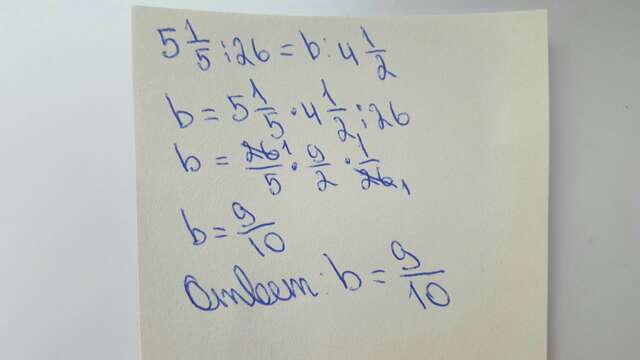 5 1/5 : 26 = b : 4 1/2
b = 5 1/5 · 4 1/2 : 26
b = 26 1/5 · 9/2 · 1/26 1
b = 9/10
Ответ: b = 9/10